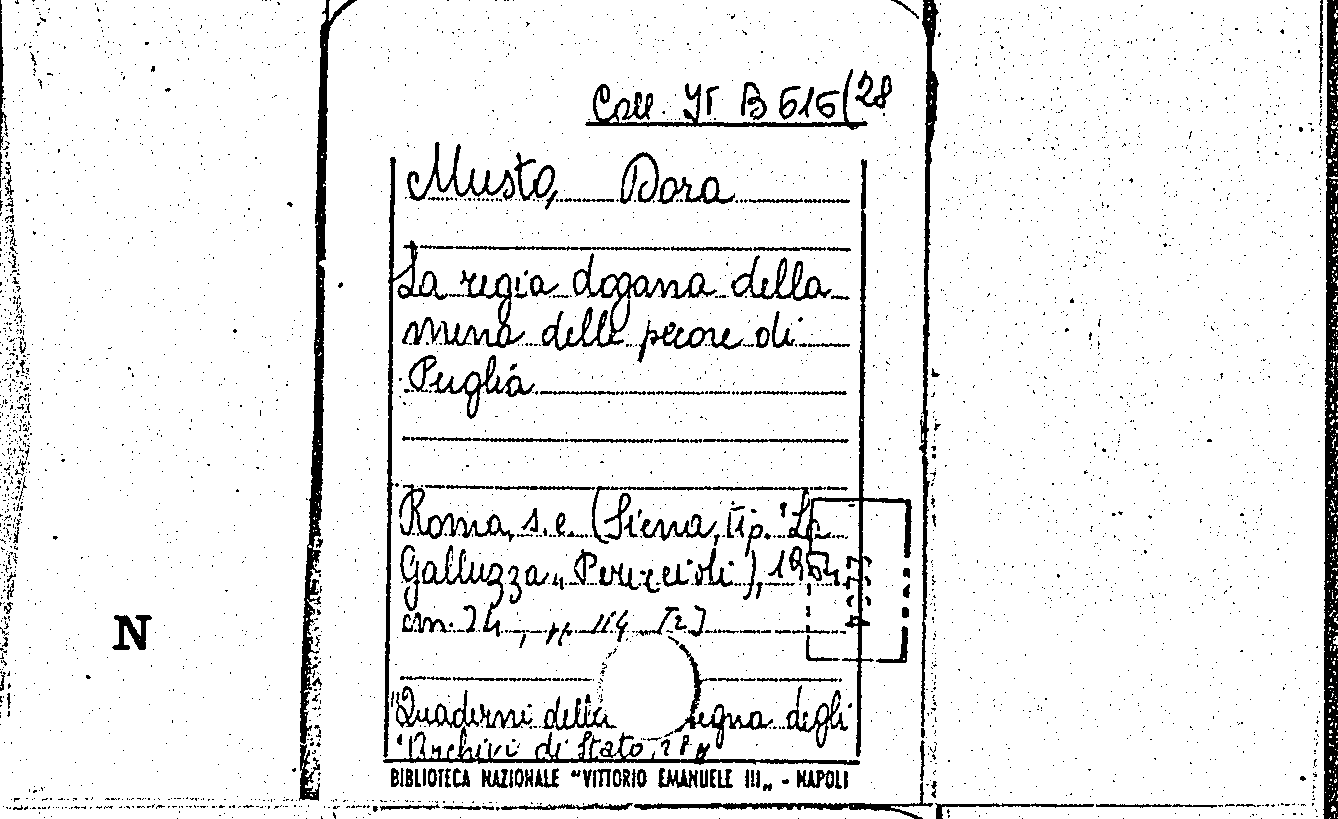 Coll. It B 515(28
Musto, Dora
La regia dogana della
mena delle pecore di
Puglia
Roma, s.e. (Siena, tip. "La
Galluzza„ Periccioli), 1964
cm. 24, pp 114 [2]
N
"Quaderni della egna degli
"Archivi di Stato, 28„
BIBLIOTECA NAZIONALE "VITTORIO EMANUELE III„ - NAPOLI